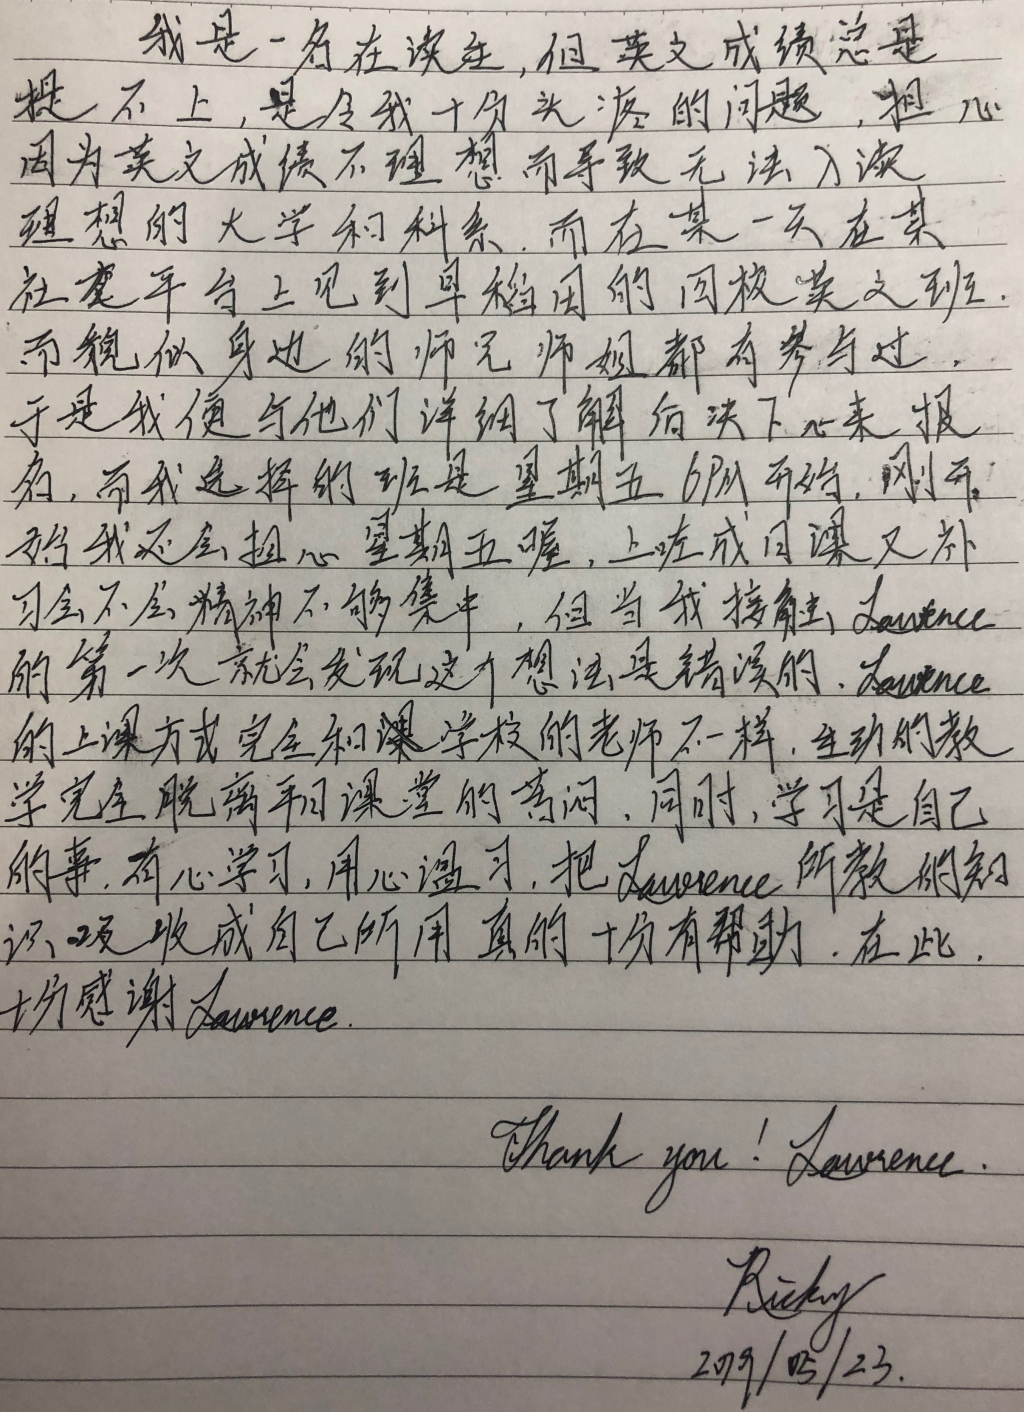 我是一名在读生,但英文成绩总是
提不上,是令我十分头疼的问题,担心
因为英文成绩不理想而导致无法入读
理想的大学和科系.而在某一天在某
社交平台上见到早稻田的回校英文班.
而貌似身边的师兄师姐都有参与过.
于是我便与他们详细了解后决下心来报
名,而我选择的班是星期五6PM开始.刚开
始我还会担心星期五喔,上咗成日课又补
习会不会精神不够集中,但当我接触Lawrence
的第一次就会发现这个想法是错误的.Lawrence
的上课方式完全和课学校的老师不一样.生动的教
学完全脱离平日课堂的苦闷.同时,学习是自己
的事.有心学习,用心温习.把Lawrence所教的知
识吸收成自己所用真的十分有帮助.在此.
十分感谢Lawrence.
Thank you! Lawrence.
Ricky
2019/05/23.